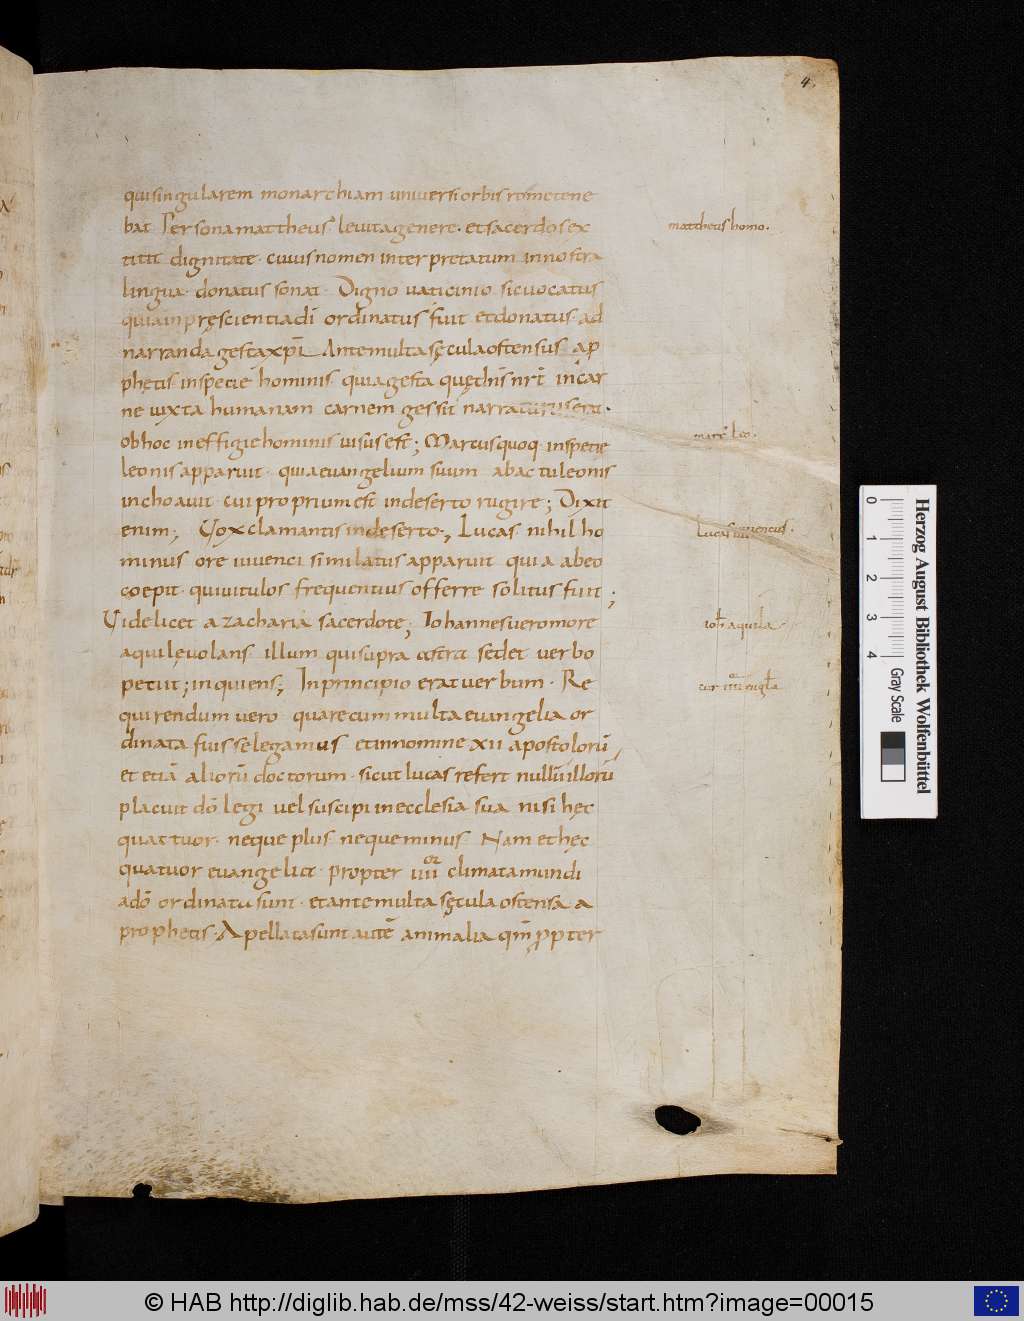 4
qui singularem monarchiam universi orbis rome tene
bat Persona mattheus. levita genere. et sacerdos ex
titit dignitate. cuius nomen interpretatum in nostra
lingua. donatus sonat. Digno vaticinio sic vocatus
quia in pręscientia dī ordinatus fuit et donatus ad
narranda gesta xp̄i. Ante multa sęcula ostensus a p
phetis in specie hominis quia gesta quę dn̄s nr̄i in car
ne iuxta humanam carnem gessit narraturus erat.
ob hoc in effigie hominis visus est; Marcus quoq. in specie
leonis apparuit. quia evangelium suum ab actu leonis
inchoavit. cui proprium est in deserto rugire; Dixit
enim; Vox clamantis in deserto; Lucas nihil ho
minus ore iuvenci similatus apparuit quia ab eo
coepit. qui vitulos frequentius offerre solitus fuit;
Videlicet a zacharia sacerdote; Iohannes vero more
aquilę volans illum qui supra astra sedet verbo
petiit; inquiens; In principio erat verbum. Re
quirendum vero quare cum multa evangelia or
dinata fuisse legamus et in nomine xii apostolorū
et etiā aliorū doctorum. sicut lucas refert nullū illorū
placuit dō legi vel suscipi in ecclesia sua nisi hęc
quattuor. neque plus neque minus Nam et hęc
quatuor evangelia. propter iiii or climata mundi
a dō ordinata sunt. et ante multa sęcula ostensa a
prophetis. Apellata sunt autē animalia qm̄ ppter
mattheus homo.
marc' leo.
Lucas iuvencus.
ioh̄ aquila
Herzog August Bibliothek Wolfenbüttel
0 1 2 3 4
Gray Scale
© HAB http://diglib.hab.de/mss/42-weiss/start.htm?image=00015